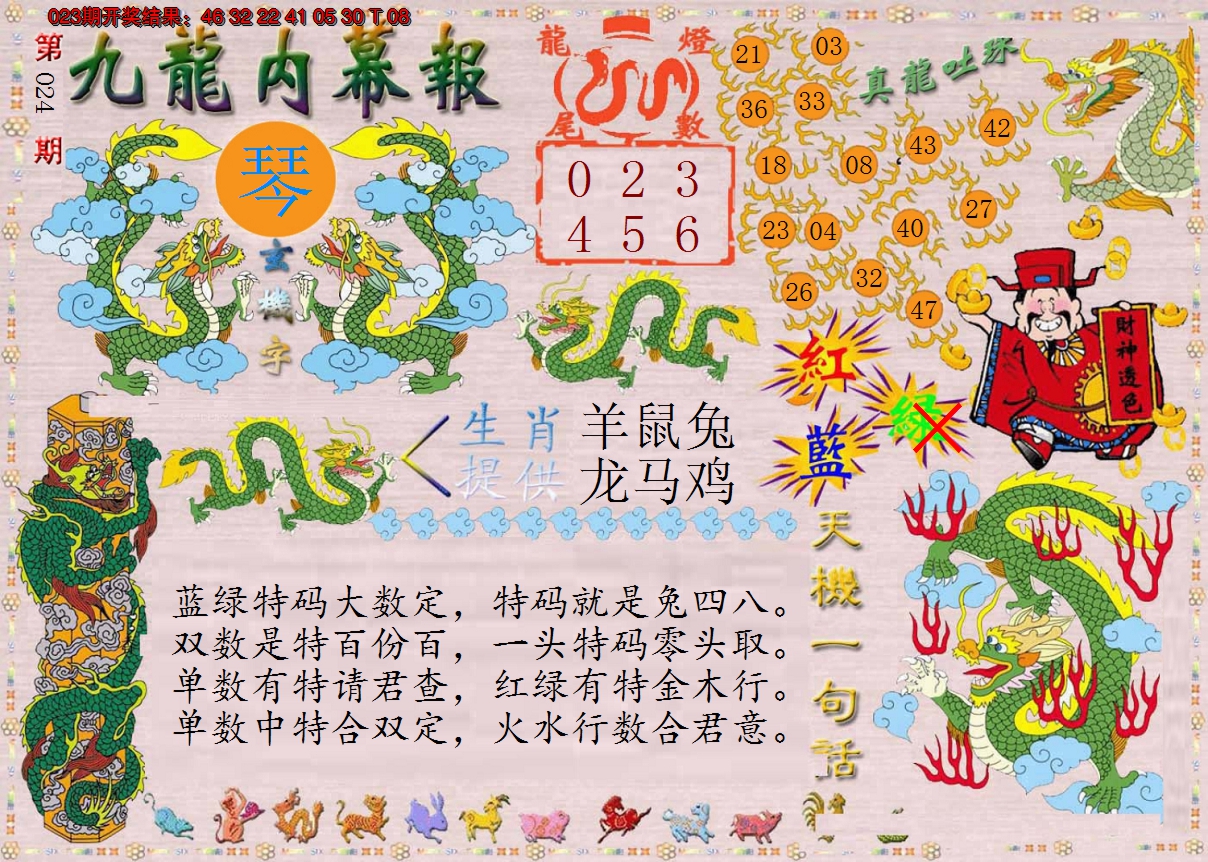 023期开奖结果：46 32 22 41 05 30 T 08
第024期
九龍内幕報
琴
玄機字
龍燈
尾數
0 2 3
4 5 6
真龍吐珠
21
03
36
33
42
43
18
08
27
23
04
40
32
26
47
財神透色
紅
綠
藍
生肖提供
羊鼠兔
龙马鸡
天機一句话
蓝绿特码大数定，特码就是兔四八。
双数是特百份百，一头特码零头取。
单数有特请君查，红绿有特金木行。
单数中特合双定，火水行数合君意。